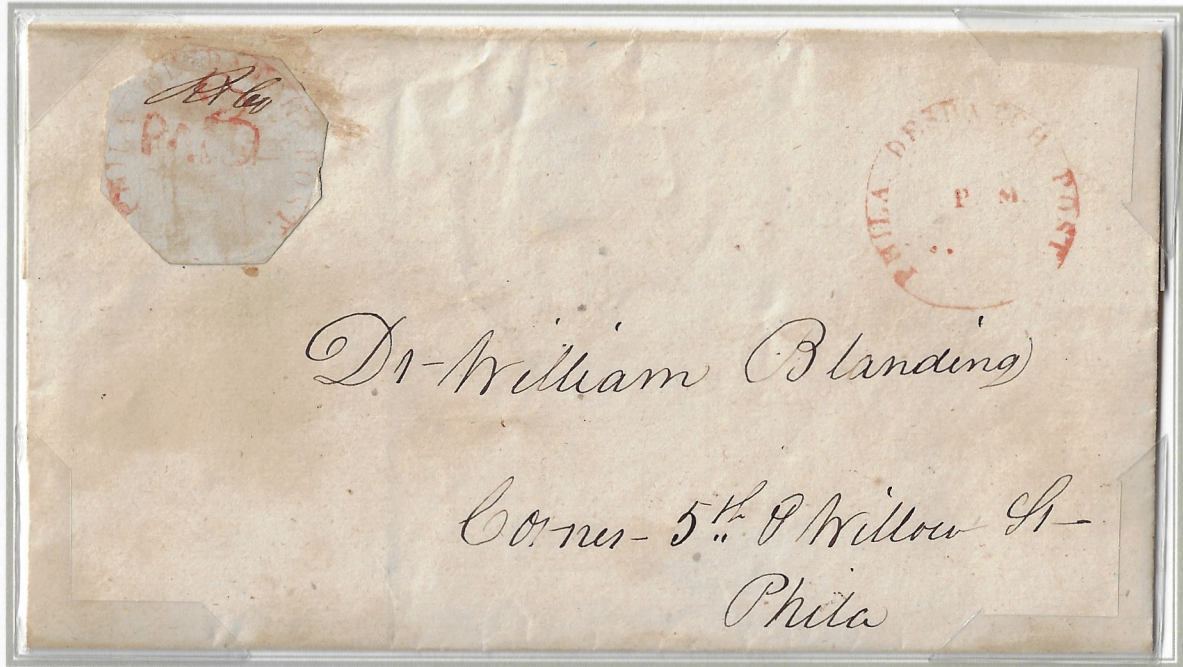 R & Co
3
PAID
PHILA DESPATCH POST
P M
Dr - William Blanding
Corner - 5th & Willow St -
Phila